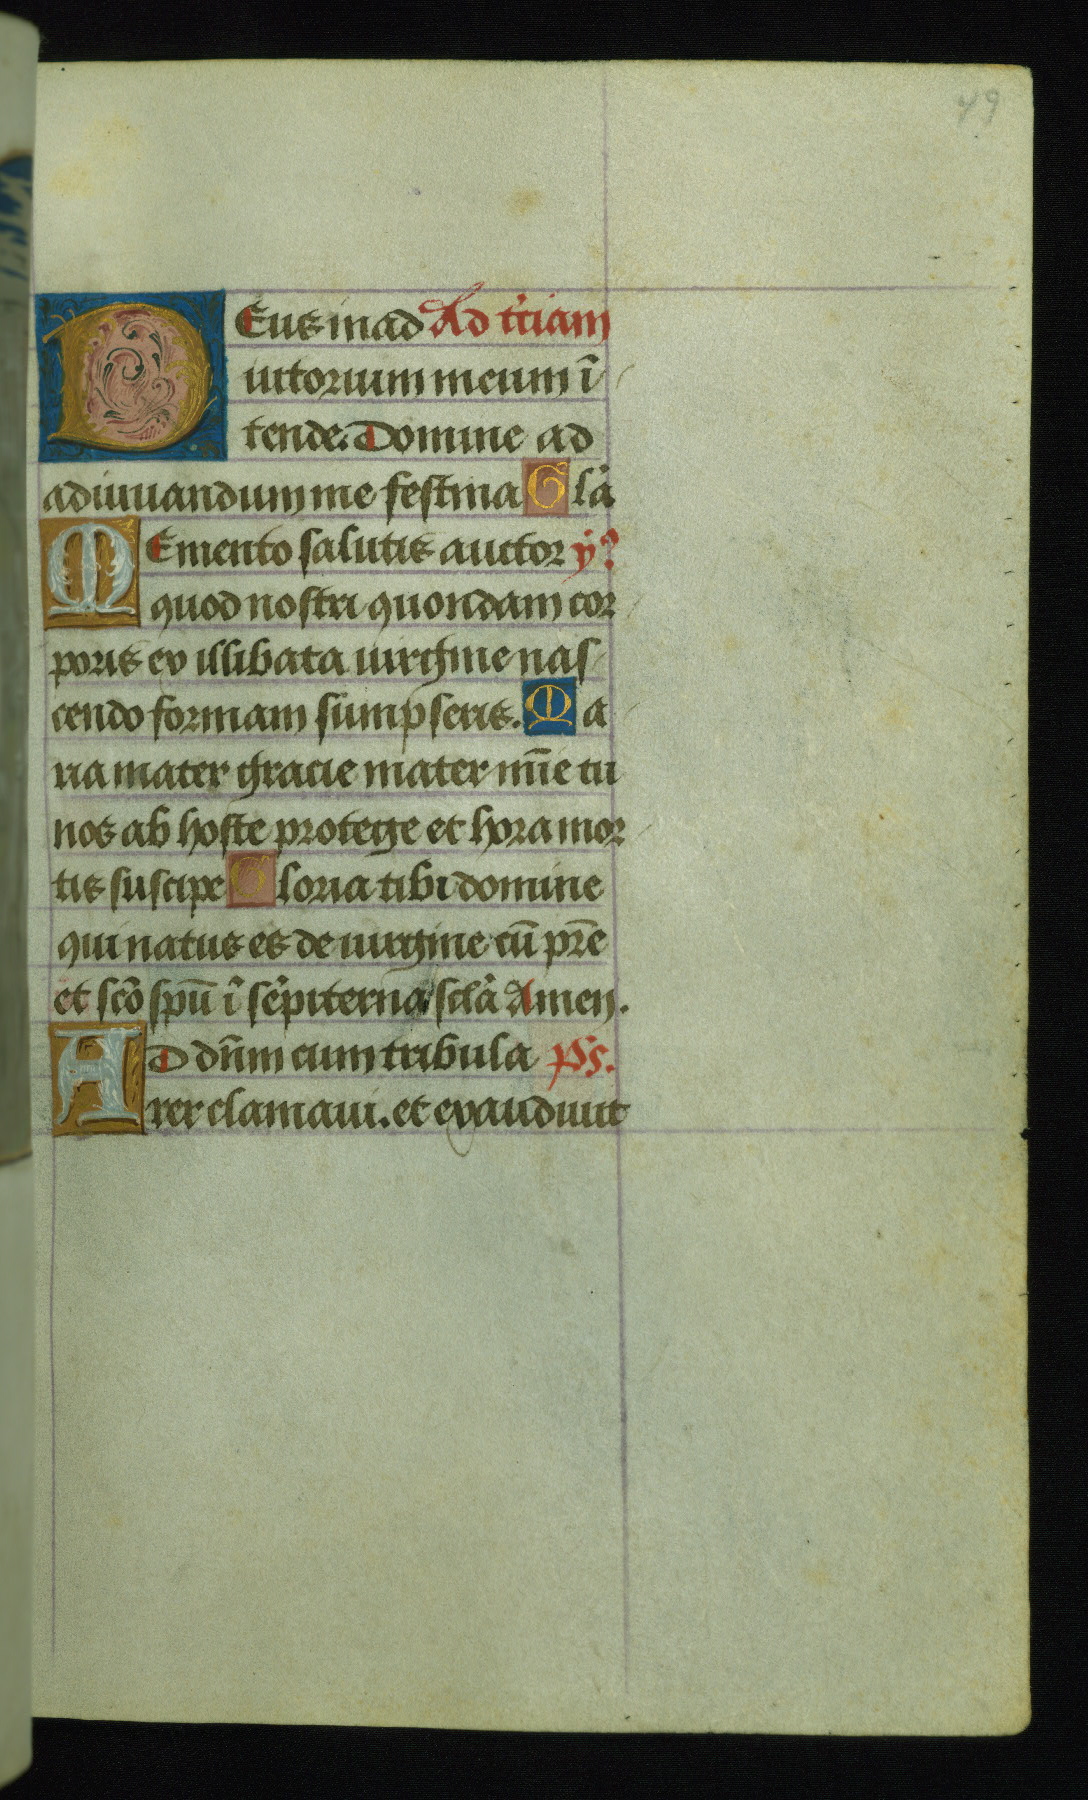 49
Deus in ad Ad t'ciam
iutorium meum ī
tende. Domine ad
adiuuandum me festina Gl'a
Memento salutis auctor ẏ?
quod nostri quondam cor
poris ex illibata uirgine nas
cendo formam sumpseris. Ma
ria mater gracie mater mīe tu
nos ab hoste protege et hora mor
tis suscipe Gloria tibi domine
qui natus es de uirgine cū pr̄e
et scō spū ī sēpiterna scl'a Amen.
Ad dn̄m cum tribula p's.
rer clamaui. et exaudiuit